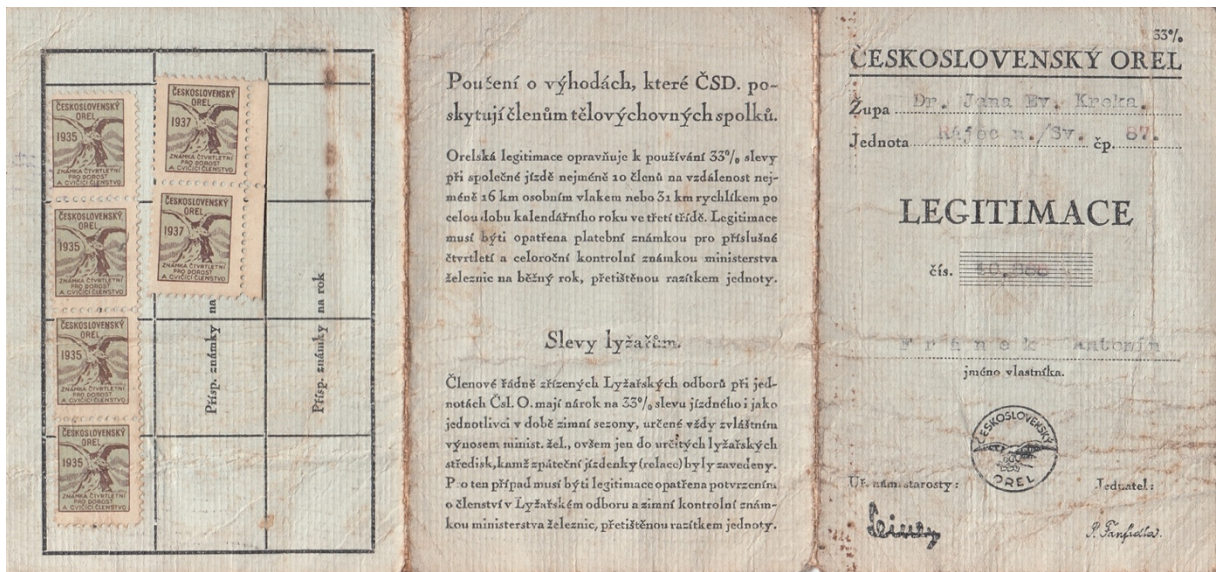 ČESKOSLOVENSKÝ
OREL
1935
ZNÁMKA ČTVRTLETNÍ
PRO DOROST
A CVIČÍCÍ ČLENSTVO
ČESKOSLOVENSKÝ
OREL
1935
ZNÁMKA ČTVRTLETNÍ
PRO DOROST
A CVIČÍCÍ ČLENSTVO
ČESKOSLOVENSKÝ
OREL
1935
ZNÁMKA ČTVRTLETNÍ
PRO DOROST
A CVIČÍCÍ ČLENSTVO
ČESKOSLOVENSKÝ
OREL
1935
ZNÁMKA ČTVRTLETNÍ
PRO DOROST
A CVIČÍCÍ ČLENSTVO
ČESKOSLOVENSKÝ
OREL
1937
ZNÁMKA ČTVRTLETNÍ
PRO DOROST
A CVIČÍCÍ ČLENSTVO
ČESKOSLOVENSKÝ
OREL
1937
ZNÁMKA ČTVRTLETNÍ
PRO DOROST
A CVIČÍCÍ ČLENSTVO
Přísp. známky na
Přísp. známky na rok
Poučení o výhodách, které ČSD. po-
skytují členům tělovýchovných spolků.
Orelská legitimace opravňuje k používání 33% slevy
při společné jízdě nejméně 10 členů na vzdálenost nej-
méně 16 km osobním vlakem nebo 31 km rychlíkem po
celou dobu kalendářního roku ve třetí třídě. Legitimace
musí býti opatřena platební známkou pro příslušné
čtvrtletí a celoroční kontrolní známkou ministerstva
železnic na běžný rok, přetištěnou razítkem jednoty.
Slevy lyžařům.
Členové řádně zřízených Lyžařských odborů při jed-
notách Čsl. O. mají nárok na 33% slevu jízdného i jako
jednotlivci v době zimní sezony, určené vždy zvláštním
výnosem minist. žel., ovšem jen do určitých lyžařských
středisk, kamž zpáteční jízdenky (relace) byly zavedeny.
Pro ten případ musí býti legitimace opatřena potvrzením
o členství v Lyžařském odboru a zimní kontrolní znám-
kou ministerstva železnic, přetištěnou razítkem jednoty.
33%
ČESKOSLOVENSKÝ OREL
Župa Dr. Jana Ev. Kroka.
Jednota Rájec n./Sv. čp. 87.
LEGITIMACE
čís.
Fránek Antonín
jméno vlastníka.
ČESKOSLOVENSKÝ
OREL
Úř. nám. starosty:
Jednatel: